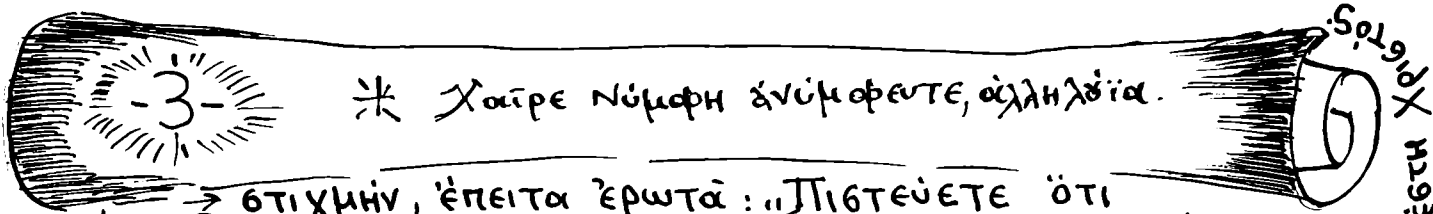 -3-
* Χαῖρε Νύμφη ἀνύμφευτε, ἀλληλούϊα.
→ στιχμήν, ἔπειτα ἐρωτᾶ: „Πιστεύετε ὅτι
Χριστός.